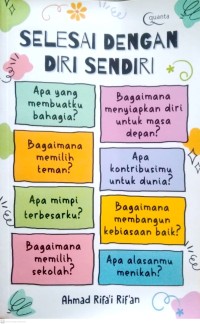 Quanta
SELESAI DENGAN
DIRI SENDIRI
Apa yang
membuatku
bahagia?
Bagaimana
menyiapkan diri
untuk masa
depan?
Bagaimana
memilih
teman?
Apa
kontribusimu
untuk dunia?
Apa mimpi
terbesarku?
Bagaimana
membangun
kebiasaan baik?
Bagaimana
memilih
sekolah?
Apa alasanmu
menikah?
Ahmad Rifa'i Rif'an